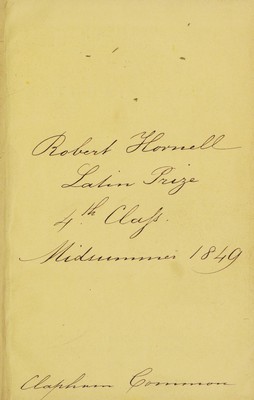 Robert Hornell
Latin Prize
4th Claſs.
Midsummer 1849
Clapham Common